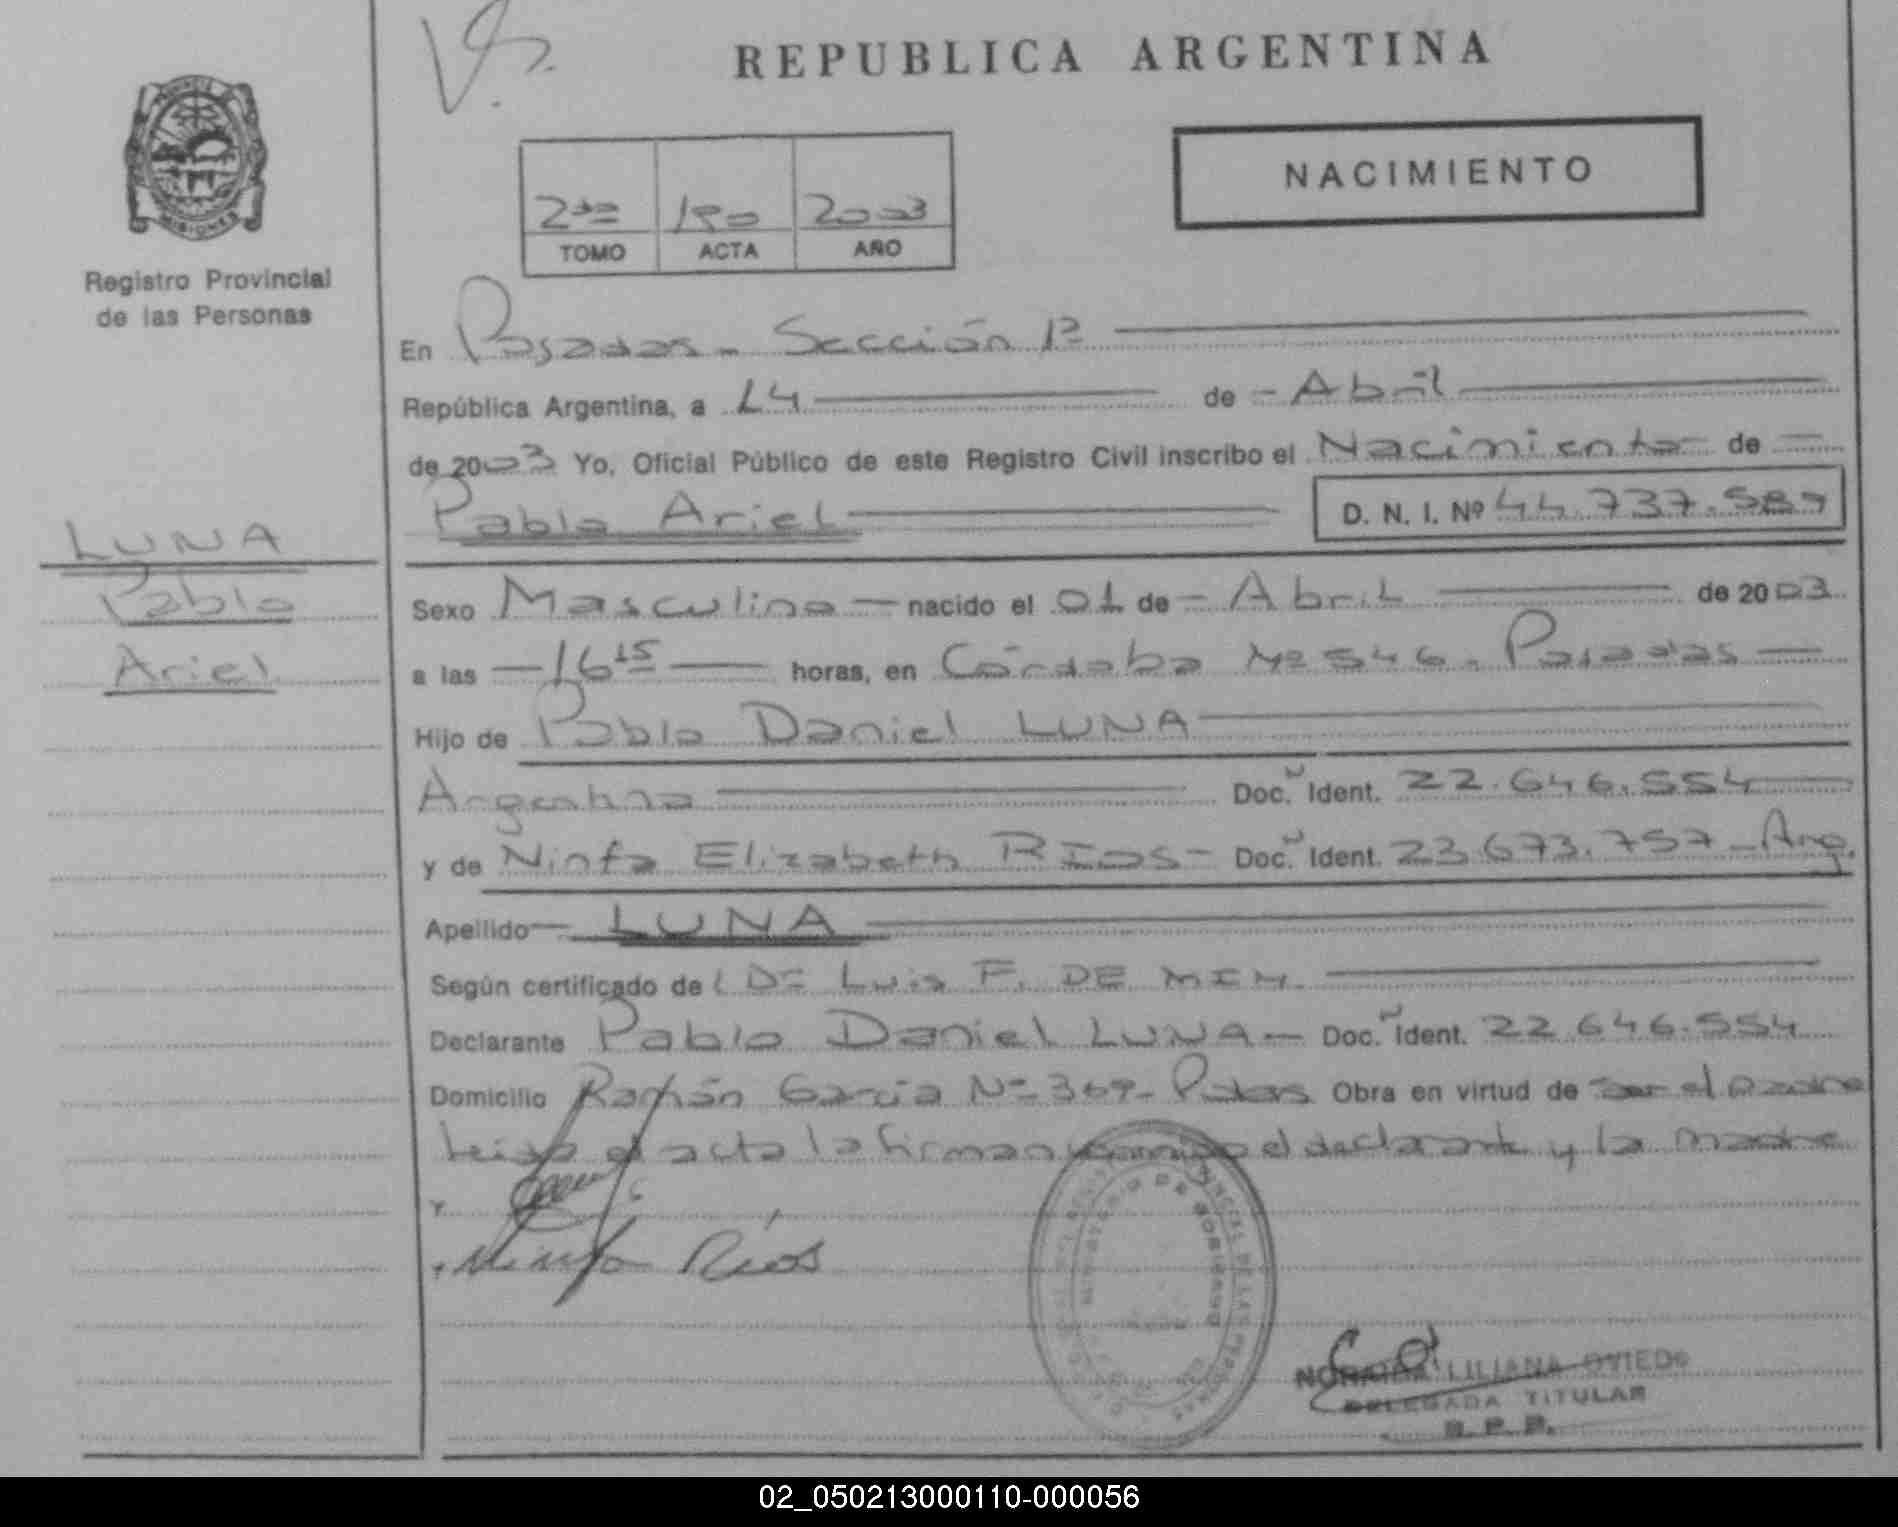 REPUBLICA ARGENTINA
NACIMIENTO
MISIONES
Registro Provincial
de las Personas
2do 190 2003
TOMO ACTA AÑO
En Posadas - Sección 1ª
República Argentina, a 14 de - Abril
de 2003 Yo, Oficial Público de este Registro Civil inscribo el Nacimiento de
Pablo Ariel D. N. I. Nº 44.737.589
LUNA
Pablo
Ariel
Sexo Masculino - nacido el 01 de - Abril de 2003
a las - 16 15 horas, en Córdoba Nº 546. Posadas
Hijo de Pablo Daniel LUNA
Argentino Doc. Ident. 22.646.554
y de Ninfa Elizabeth RIOS - Doc. Ident. 23.673.757 - Arg.
Apellido - LUNA
Según certificado de Dr Luis F. DE
Declarante Pablo Daniel LUNA - Doc. Ident. 22.646.554
Domicilio Ramón García Nº 369 - Obra en virtud de ser el padre
leida el acta la firman conmigo el declarante y la madre
Ninfa Rios
MINISTERIO DE GOBIERNO
LILIANA OVIEDO
DELEGADA TITULAR
R. P. P.
02_050213000110-000056